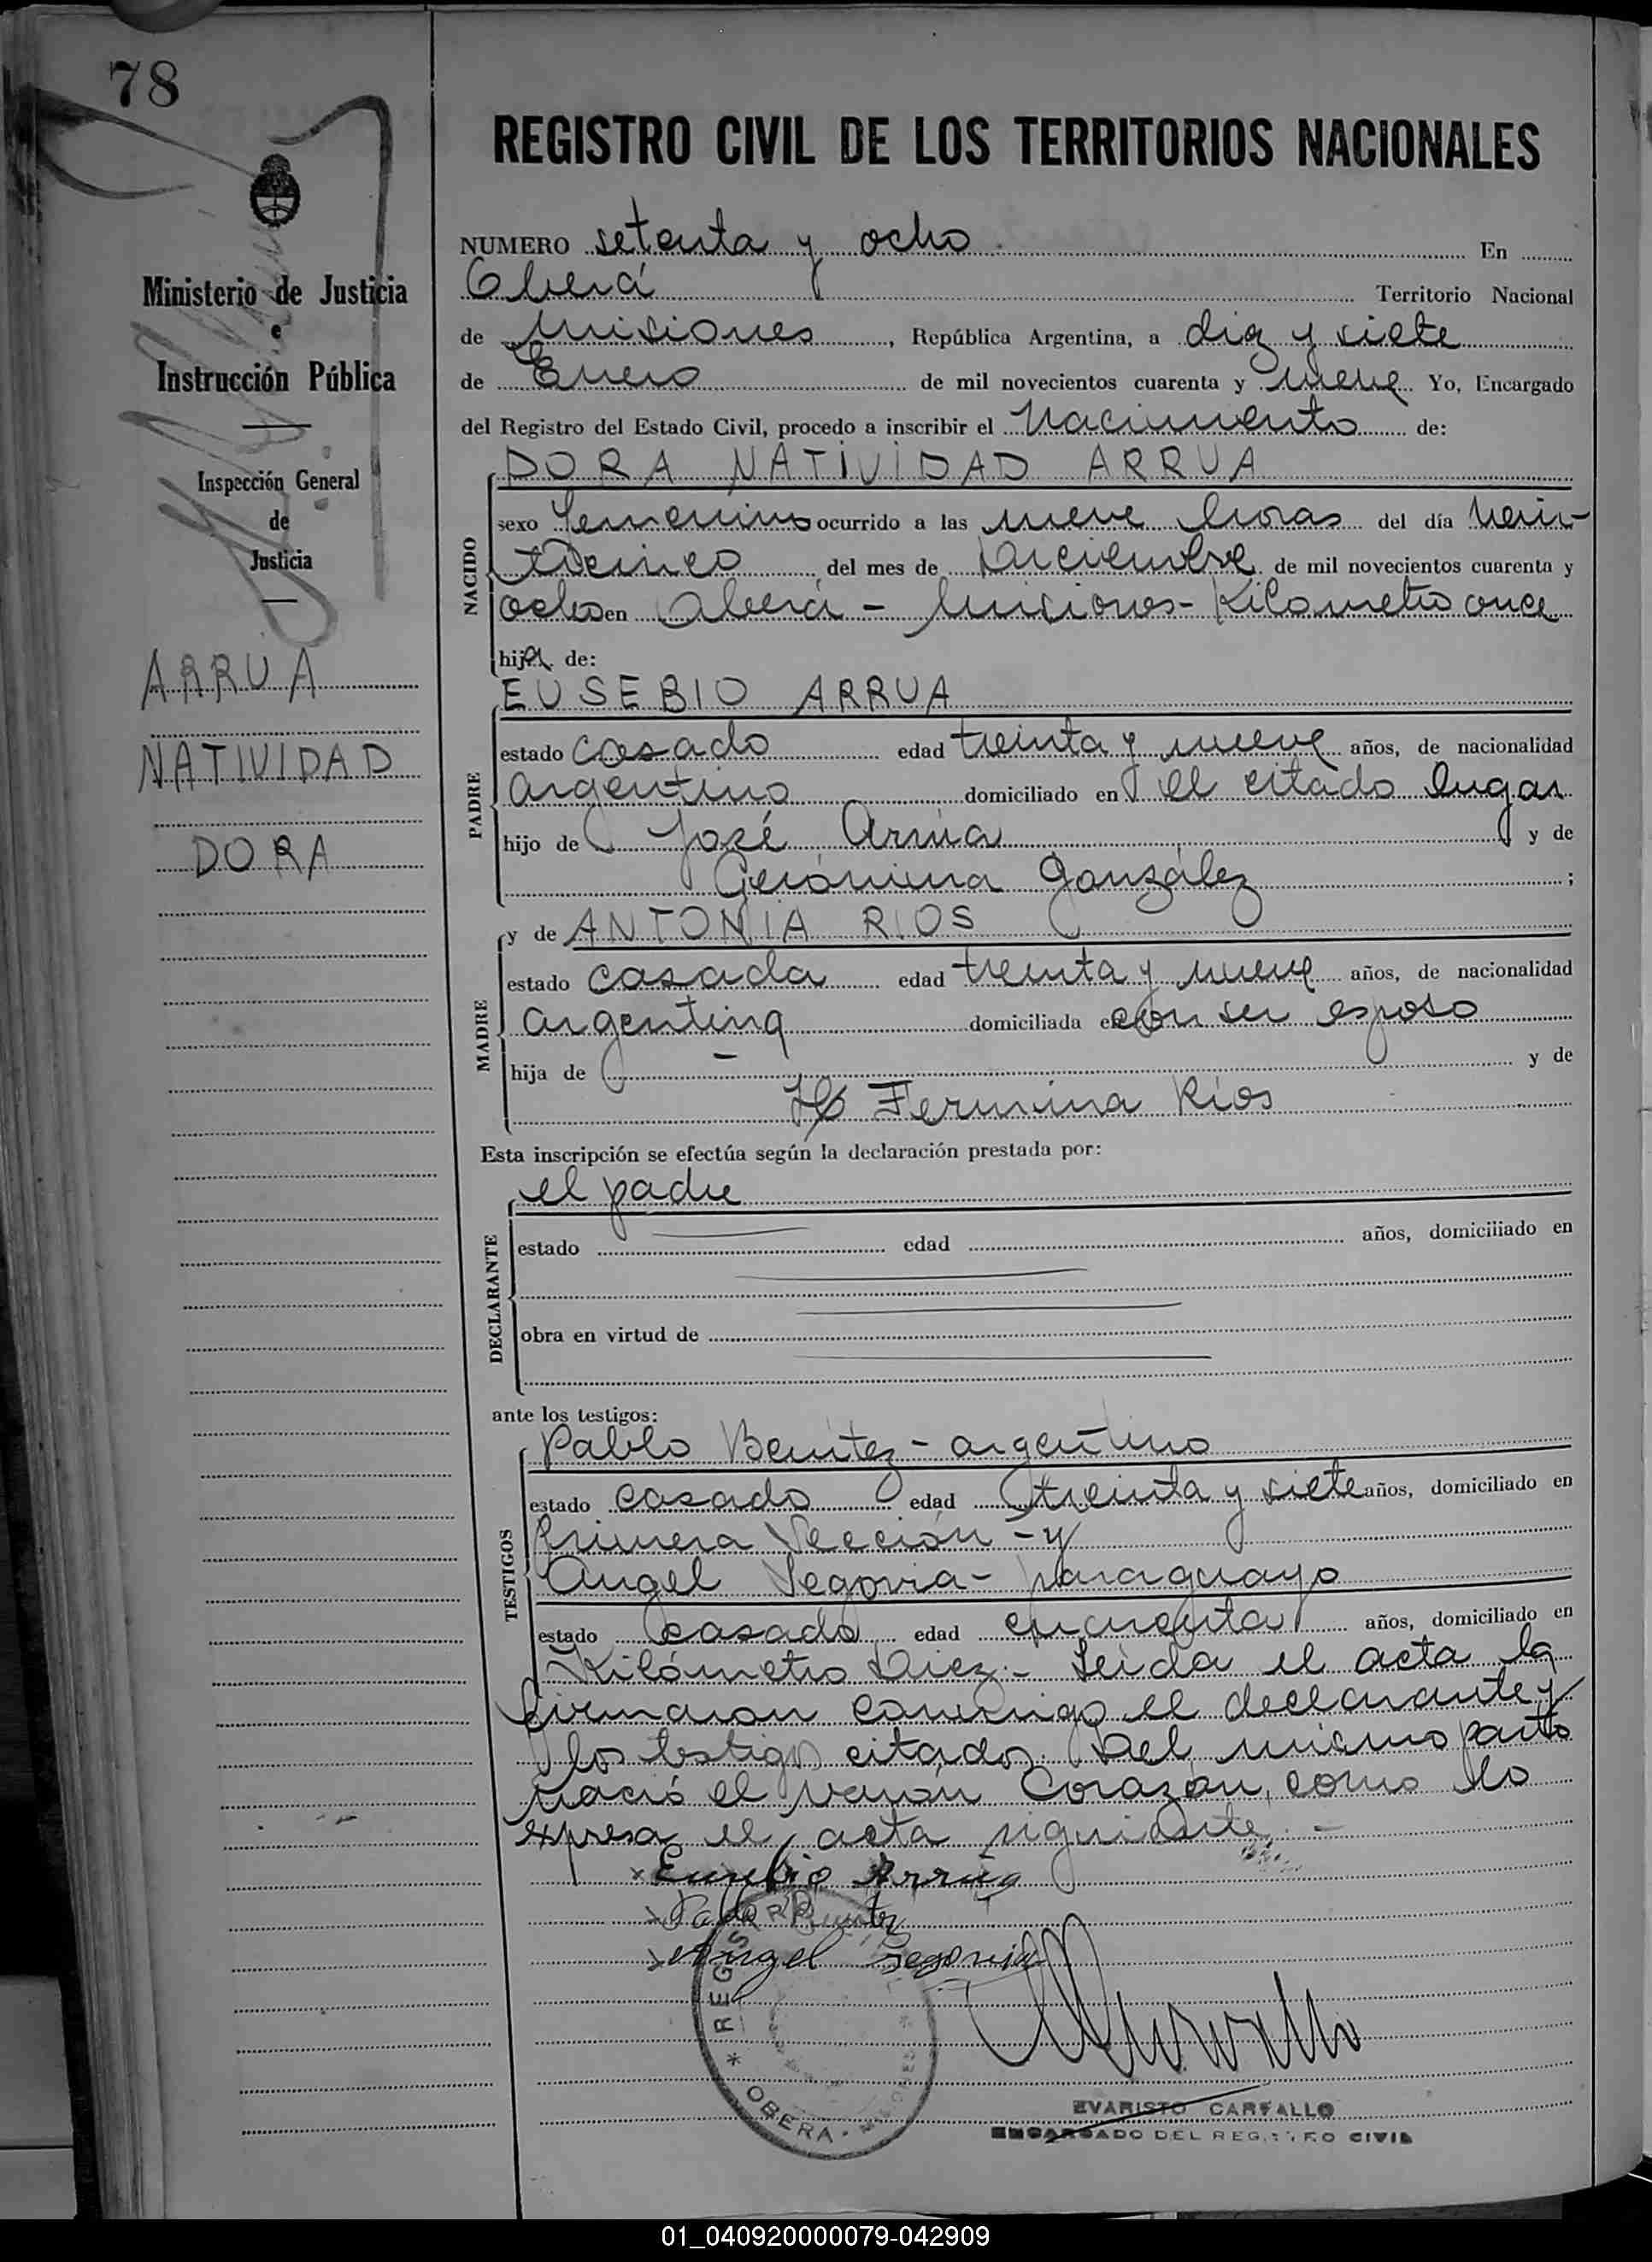 78
REGISTRO CIVIL DE LOS TERRITORIOS NACIONALES
Ministerio de Justicia
e
Instrucción Pública
Inspección General
de
Justicia
ARRUA
NATIVIDAD
DORA
NUMERO setenta y ocho En
Oberá Territorio Nacional
de Misiones, República Argentina, a diez y siete
de Enero de mil novecientos cuarenta y nueve Yo, Encargado
del Registro del Estado Civil, procedo a inscribir el Nacimiento de:
NACIDO
DORA NATIVIDAD ARRUA
sexo femenino ocurrido a las nueve horas del día vein-
ticinco del mes de Diciembre de mil novecientos cuarenta y
ocho en Oberá - Misiones - Kilometro once
hija de:
PADRE
EUSEBIO ARRUA
estado casado edad treinta y nueve años, de nacionalidad
argentino domiciliado en el citado lugar
hijo de José Arrua y de
Gerónima González ;
MADRE
y de ANTONIA RIOS
estado casada edad treinta y nueve años, de nacionalidad
argentina domiciliada en con su esposo
hija de - y de
Fermina Ríos
Esta inscripción se efectúa según la declaración prestada por:
DECLARANTE
el padre
estado edad años, domiciliado en
obra en virtud de
ante los testigos:
TESTIGOS
Pablo Benitez - argentino
estado casado edad treinta y siete años, domiciliado en
Primera Sección - y
Angel Segovia - paraguayo
estado casado edad cincuenta años, domiciliado en
Kilómetro Diez.- Leida el acta la
firmaron conmigo el declarante y
los testigos citados. Del mismo parto
nació el varón Corazón, como lo
expresa el acta siguiente. -
x Eusebio Arrúa
x Pablo Benitez
x Angel Segovia
* REGISTRO
* OBERA - MISIONES *
EVARISTO CARVALLO
ENCARGADO DEL REGISTRO CIVIL
01_040920000079-042909